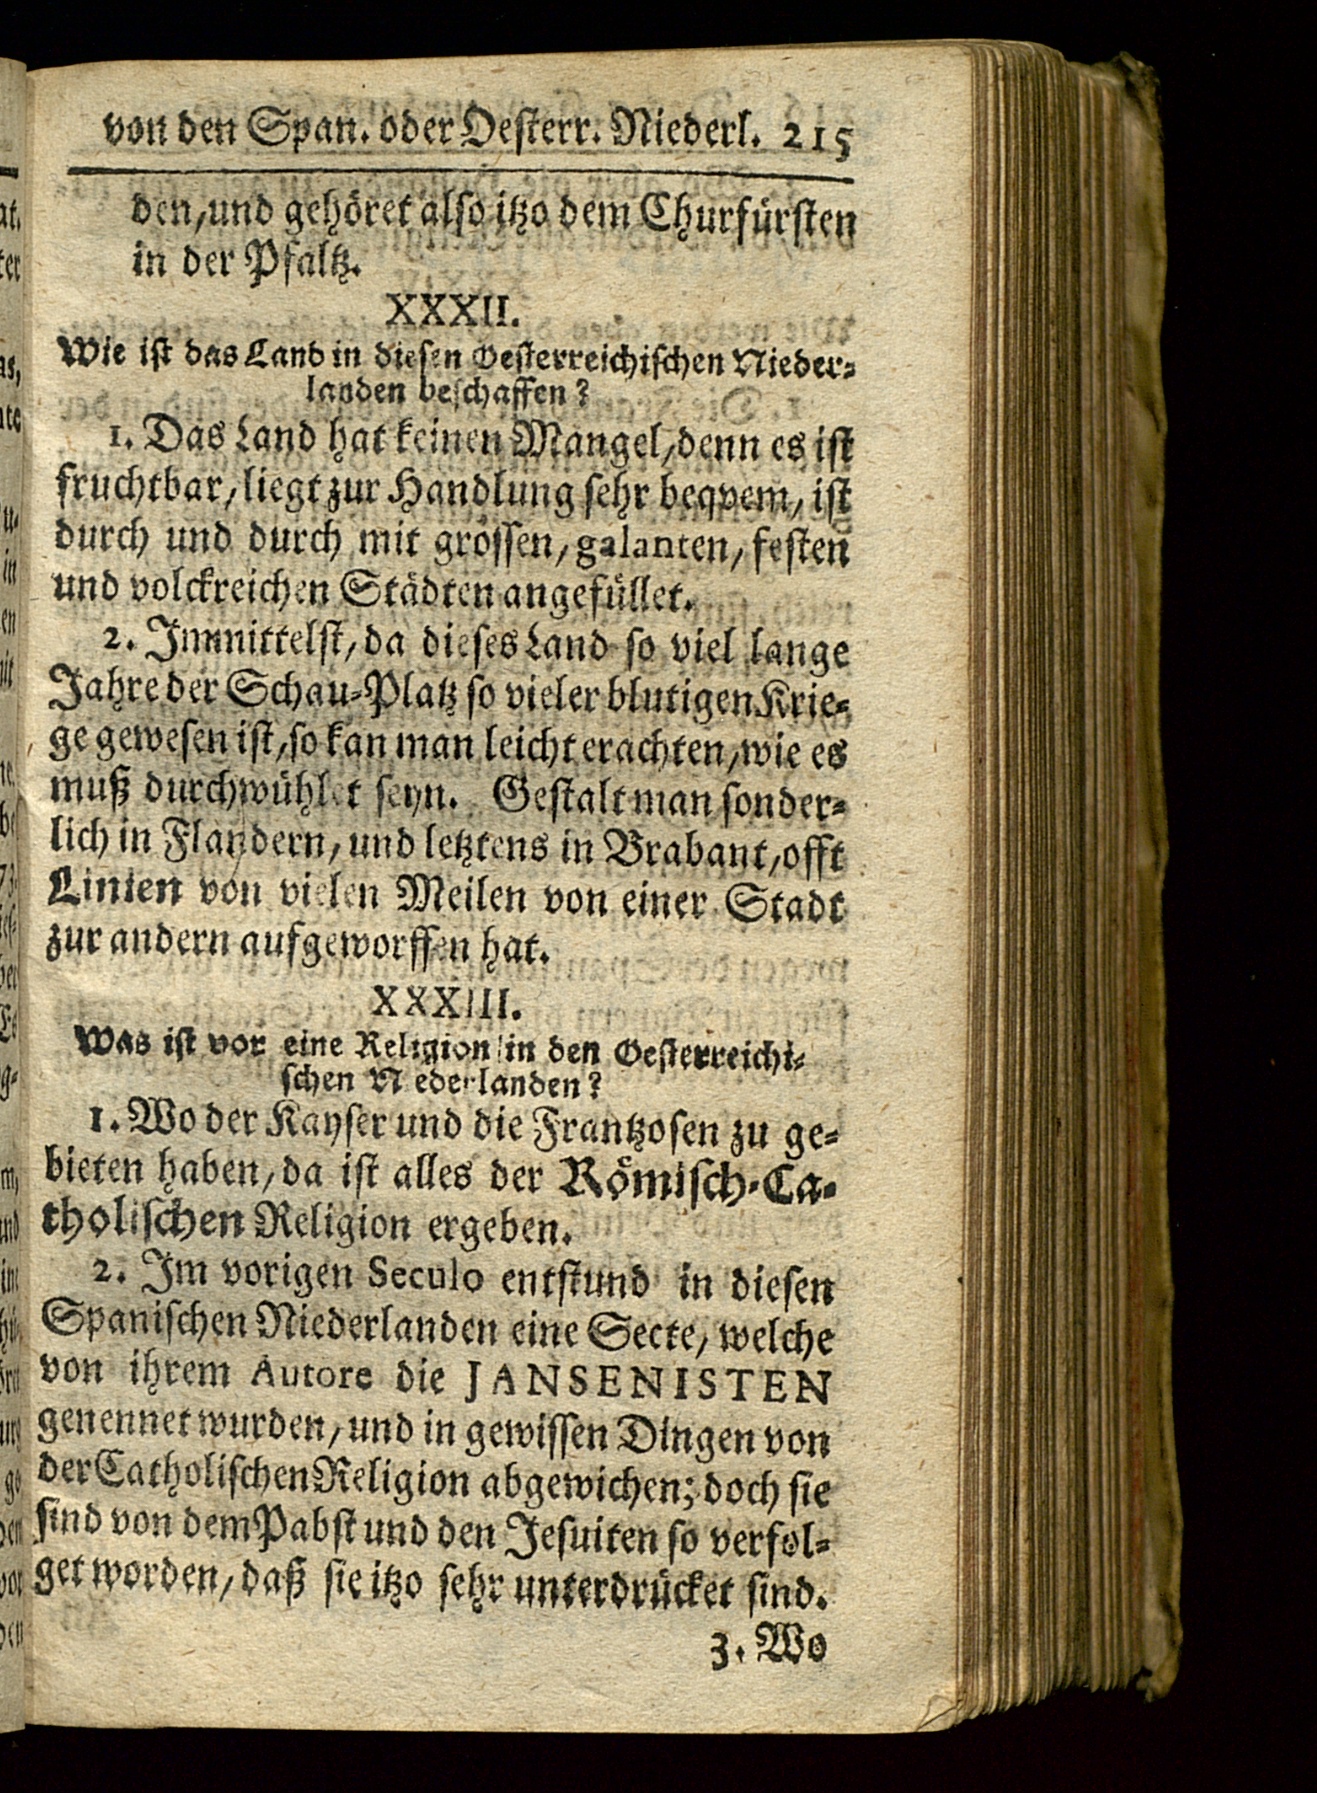 von den Span. oder Oesterr. Niederl. 215
den, und gehöret also itzo dem Churfürsten
in der Pfaltz.
XXXII.
Wie ist das Land in diesen Oesterreichischen Nieder-
landen beschaffen?
1. Das Land hat keinen Mangel, denn es ist
fruchtbar, liegt zur Handlung sehr beqvem, ist
durch und durch mit grossen, galanten, festen
und volckreichen Städten angefüllet.
2. Immittelst, da dieses Land so viel lange
Jahre der Schau-Platz so vieler blutigen Krie-
ge gewesen ist, so kan man leicht erachten, wie es
muß durchwühlet seyn. Gestalt man sonder-
lich in Flandern, und letztens in Brabant, offt
Linien von vielen Meilen von einer Stadt
zur andern aufgeworffen hat.
XXXIII.
Was ist vor eine Religion in den Oesterreichi-
schen Niederlanden?
1. Wo der Kayser und die Frantzosen zu ge-
bieten haben, da ist alles der Römisch-Ca-
tholischen Religion ergeben.
2. Im vorigen Seculo entstund in diesen
Spanischen Niederlanden eine Secte, welche
von ihrem Autore die JANSENISTEN
genennet wurden, und in gewissen Dingen von
der Catholischen Religion abgewichen; doch sie
sind von dem Pabst und den Jesuiten so verfol-
get worden, daß sie itzo sehr unterdrücket sind.
3. Wo